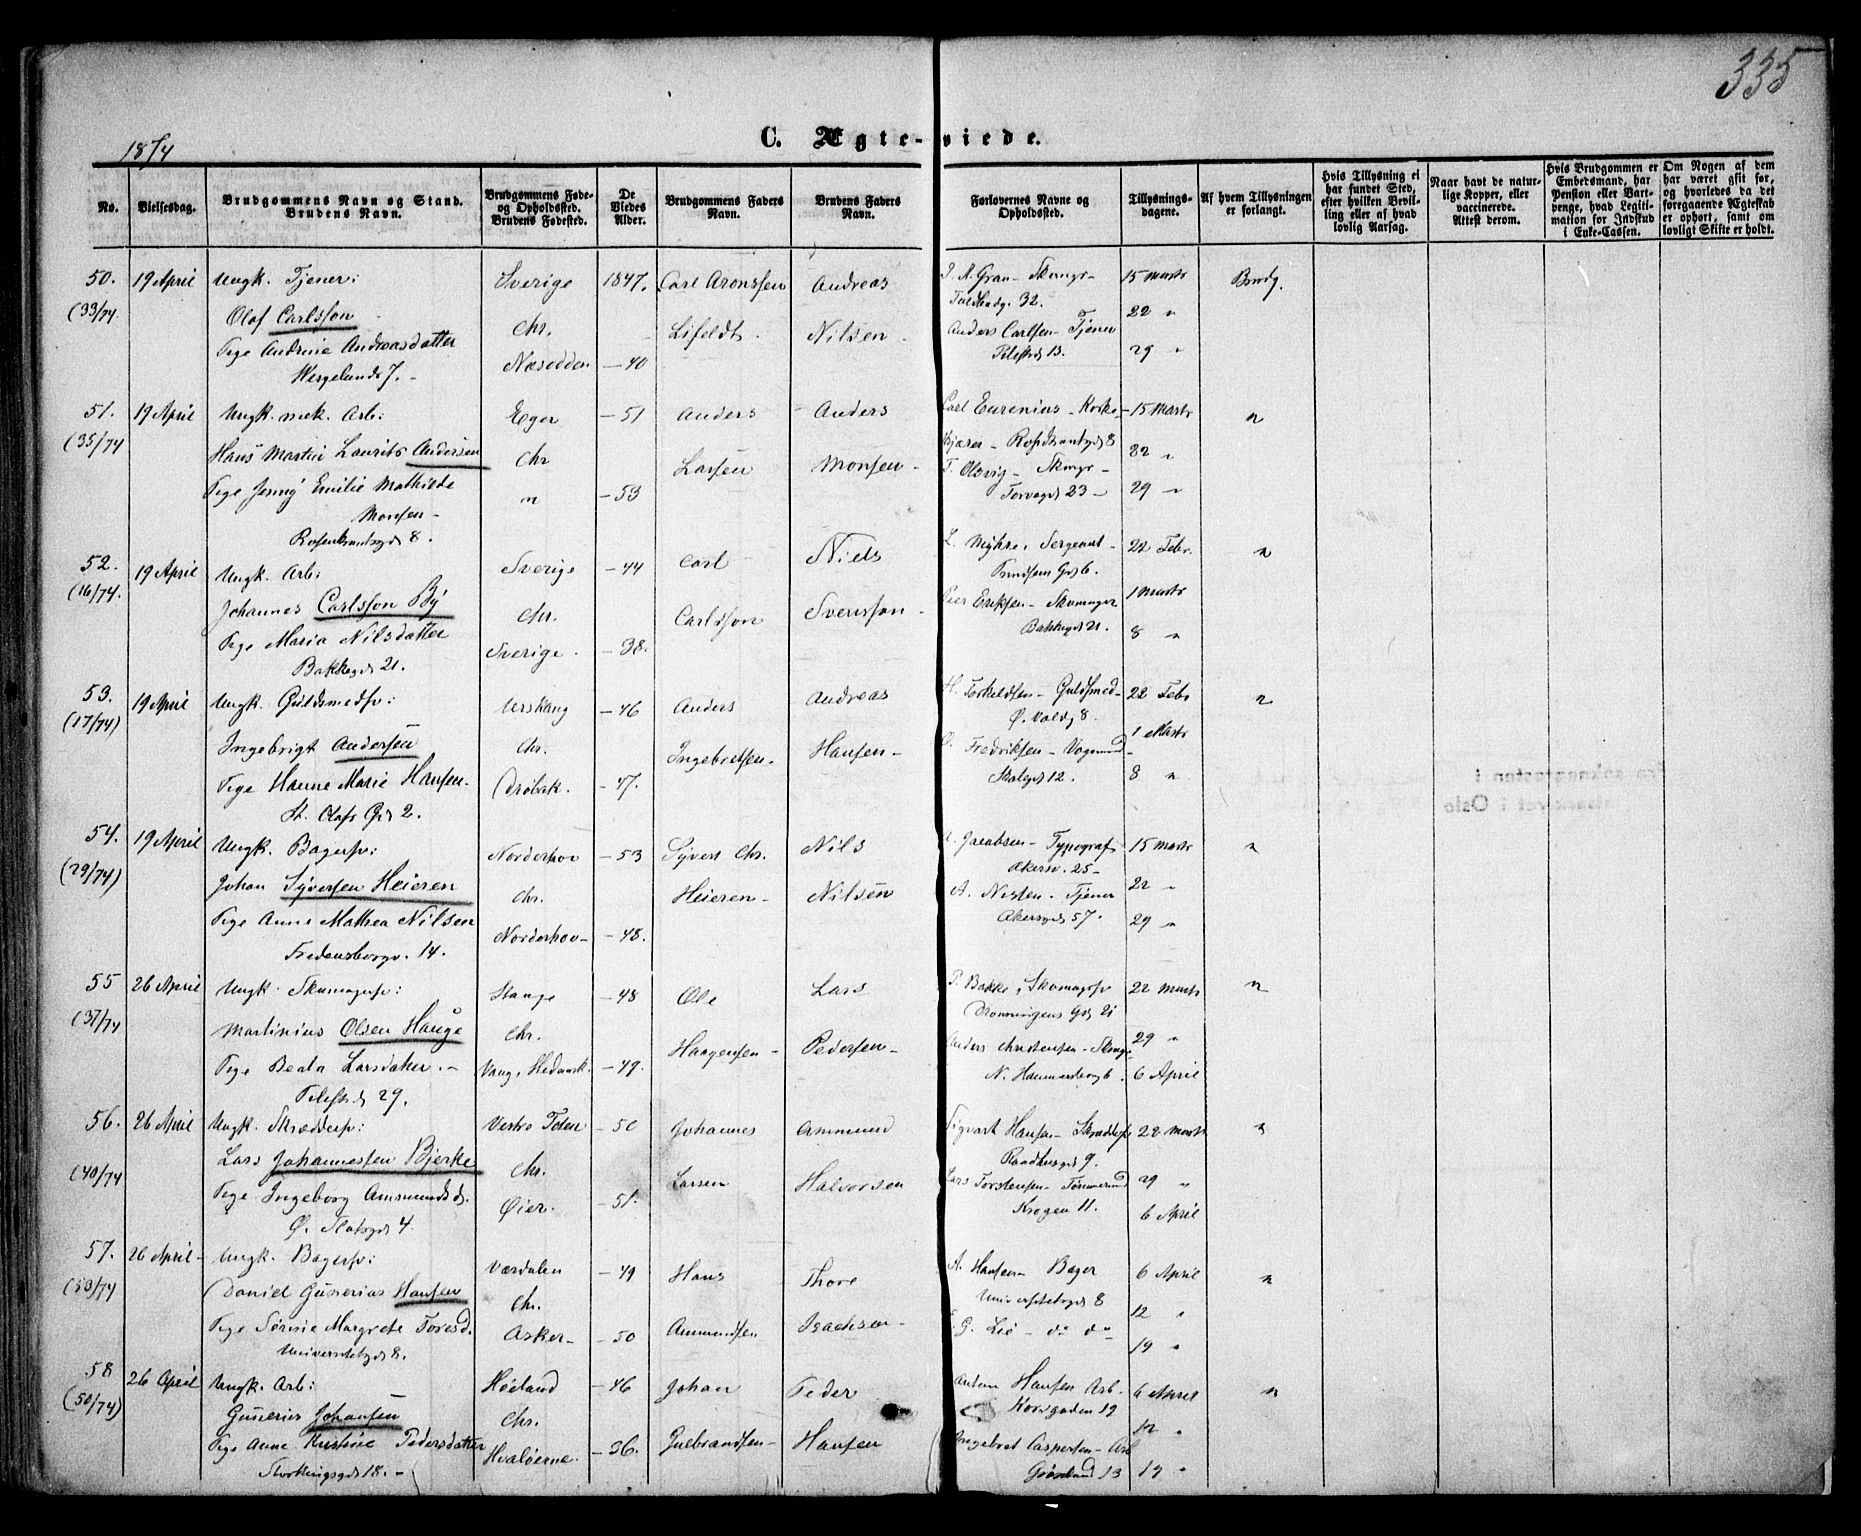 335
1874
C. Ægte-viede.
No. | Vielsesdag. | Brudgommens Navn og Stand. Brudens Navn. | Brudgommens Føde- og Opholdssted. Brudens Fødested. | De Viedes Alder. | Brudgommens Faders Navn. | Brudens Faders Navn. | Forlovernes Navne og Opholdssted. | Tillysnings-dagene. | Af hvem Tillysningen er forlangt. | Hvis Tillysning ei har fundet Sted, efter hvilken Bevilling eller af hvad lovlig Aarsag. | Naar havt de naturlige Kopper, eller vaccinerede. Attest derom. | Hvis Brudgommen er Embedsmand, har Pension eller Vartpenge, hvad Legitimation for Indskud i Enke-Cassen. | Om Nogen af dem har været gift før, og hvorledes da det foregaaende Ægteskab er ophørt, samt om lovligt Skifte er holdt.
50. | 19 April | Ungk. Tjener: | Sverige | 1847. | Carl Aronssen | Andreas | Gran - Skomgr - | 15 Marts | Brudg.
(33/74 | Olaf Carlsson | Chr. | Lifeldt. | Nilsen. | Toldbodg. 32. | 22 "
Pige Andrine Andreasdatter | Næsodden | - 40 | Anders Carlsen - Tjener
Wergelands 7. - | 13. | 29 "
51. | 19 April | Ungk. mek. Arb: | Eger | - 51 | Anders | Anders | Carl Eurenius - Korke- | 15 Marts | "
(35/74 | Hans Martin Laurits Andersen | Chr | Larsen | Monsen - | 8 | 22 "
Pige Jenny Emilie Mathilde | " | - 53 | Olsvig - Skomgr -
Monsen - | Torvegd 23 - | 29 "
Rosenkrantzgd 8.
52. | 19 April | Ungk. Arb: | Sverige | - 44 | Carl | Niels | L. Myhre, Sergeant - | 22 Febr. | "
(16/74. | Johannes Carlsson By | Chr. | Carlsson | Svensson - | 6. | 1 Marts
Pige Maria Nilsdatter | Sverige. | - 38. | Eriksen - Skomager
Bakkegd 21. | Bakkegd 21. | 8 "
53. | 19 April | Ungk. Guldsmedsv: | Urskoug | - 46 | Anders | Andreas | H. Torkeldsen - Guldsmed- | 22 Febr | "
(17/74) | Ingebrigt Andersen | Chr. | Ingebretsen. | Hansen - | Ø. Voldg 8. | 1 Marts
Pige Hanne Marie Hansen. | Drøbak. | - 47. | Fredriksen - Vognmd -
St. Olafs Gd 2. | 12. | 8 "
54. | 19 April | Ungk. Bagersv: | Norderhov | - 53 | Syvert Chr. | Nils | Jacobsen - Typograf | 15 Marts | "
(29/74) | Johan Syversen Heieren | Chr. | Heieren - | Nilsen | Akersv. 25 - | 22 "
Pige Anne Mathea Nilsen | Norderhov - | - 48. | A. Nisten. Tjener
Fredensborgv. 14. | Akersgd 57. | 29 "
55 | 26 April | Ungk. Skomagersv: | Stange | - 48 | Ole | Lars | P. Bakke, Skomagersv | 22 Marts | "
(37/74 | Martinius Olsen Hauge | Chr. | Haagensen - | Pedersen - | Dronningens Gd 21 | 29 "
Pige Beata Larsdatter. - | Vang, Hedmark. | - 49. | Anders Christensen - Skmgr
29. | N. Hammersborg 6. | 6 April
56. | 26 April | Ungk. Skræddersv: | Vestre Toten | - 50 | Johannes | Ammund | Sigvart Hansen - Skræddersv | 22 Marts | "
(40/74 | Lars Johannessen Bjerke | Chr. | Larsen | Halvorsen | Raadhusgd 9. | 29 "
Pige Ingeborg Amsmundsd. | Øier. | - 51. | Lars Torstensen - Tømmermd
Ø. Slotsgd 4. | Krogen 11. | 6 April
57. | 26 April - | Ungk. Bagersv: | Værdalen | - 49 | Hans | Thore | A. Hansen - Bager | 6 April | "
(53/74 | Daniel Gunerius Hansen | Chr. | Ammundsen | Isachsen - | Universitetsgd 8 | 12 "
Pige Sørine Margrete Toresd. | Asker - | - 50 | G. Lie - do do
Universitetsgd 8. | 19 "
58 | 26 April | Ungk. Arb: | Høiland | - 46 | Johan | Peder | Anton Hansen Arb. | 6 April | "
(50/74) | Gunerius Johansen | Chr. | Gulbrandsen - | Hansen | Korsgaden 19 | 12 "
Pige Anne Kristine Pedersdatter | Hvaløerne. | - 36. | Ingebret Caspersen - Arb
18. - | Grønland 13 | 19 "